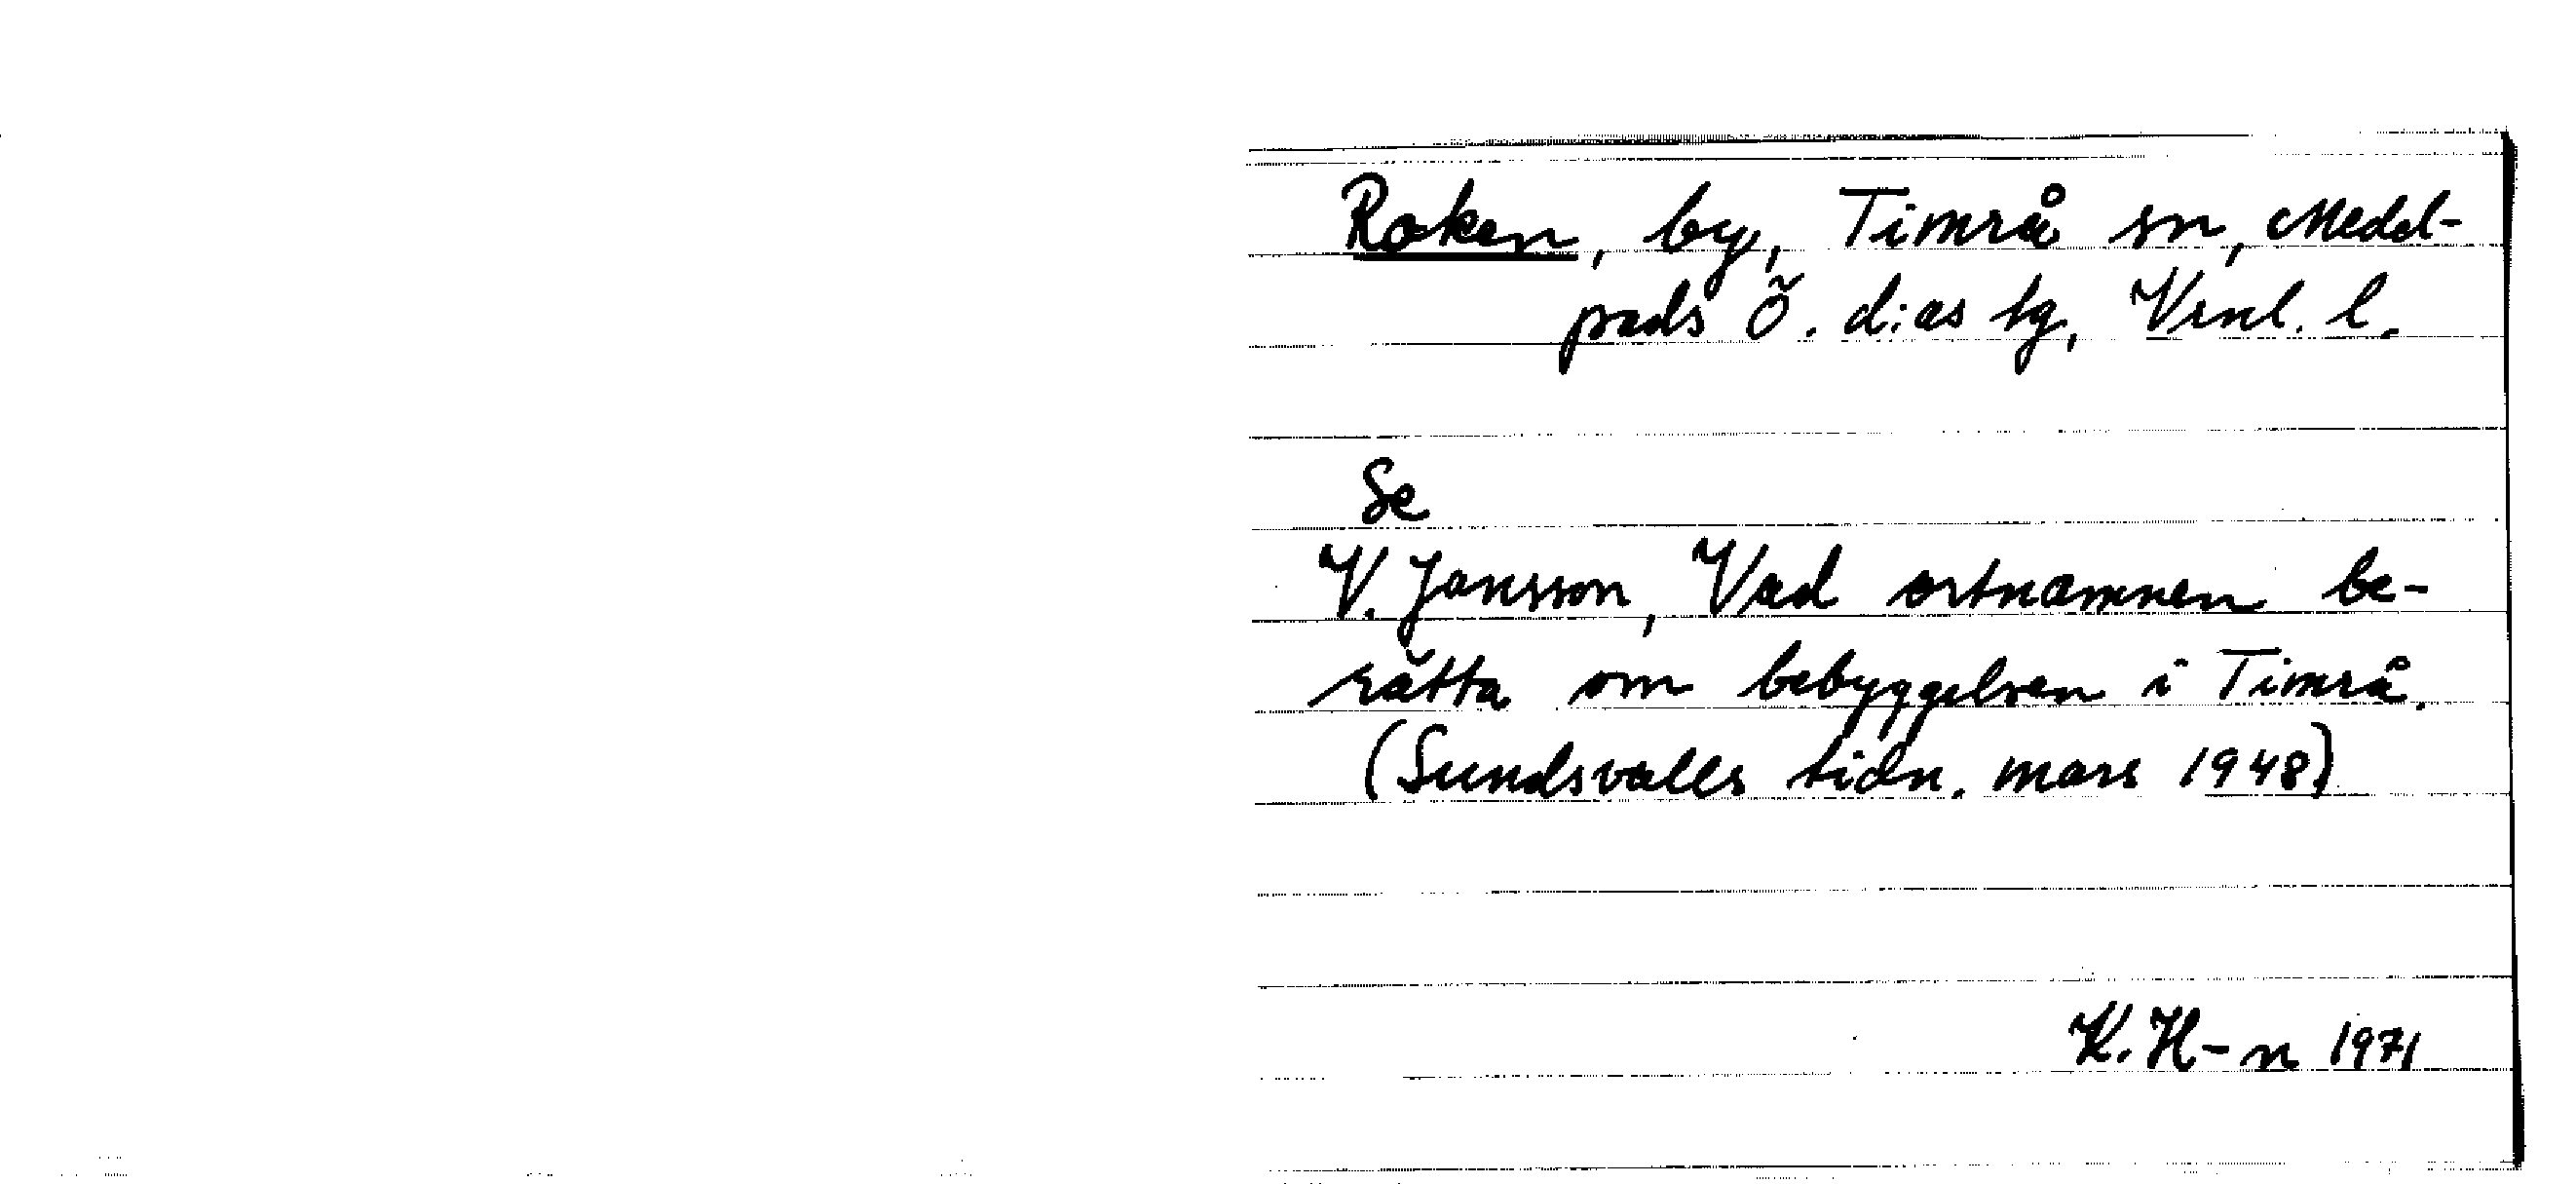 Roken, by, Timrå sn, Medel-
pads Ö. d:as tg, Vrnl. l.
Se
V. Jansson, Vad ortnamnen be-
rätta om bebyggelsen i Timrå.
(Sundsvalls tidn. mars 1948)
K. H-n 1971